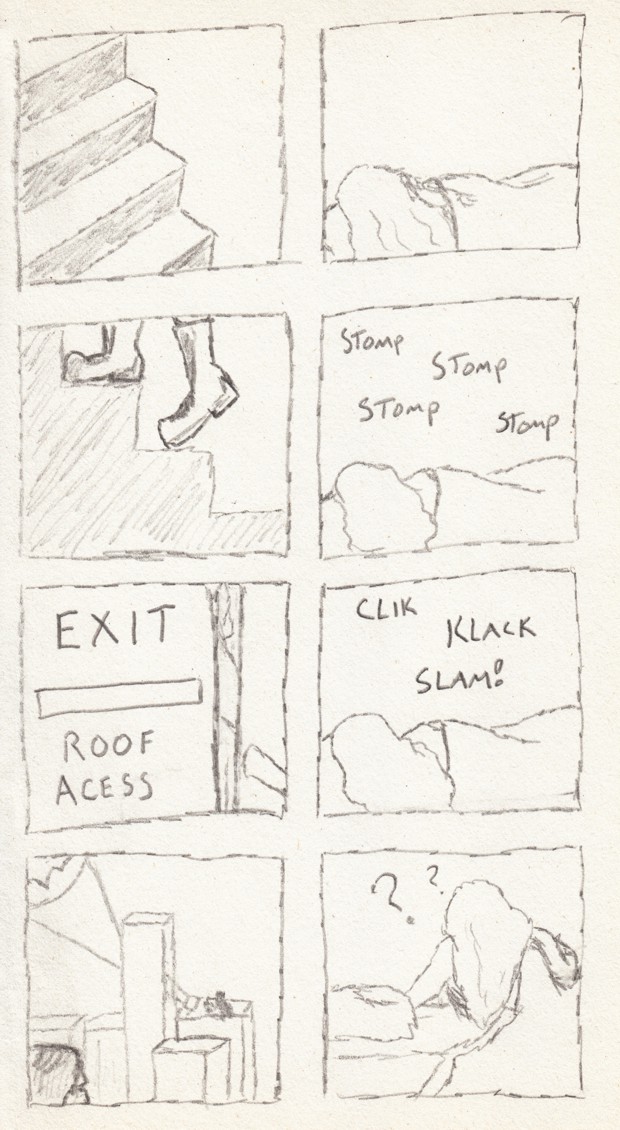 STOMP
STOMP
STOMP
STOMP
EXIT
ROOF
ACESS
CLIK
KLACK
SLAM!
? ?